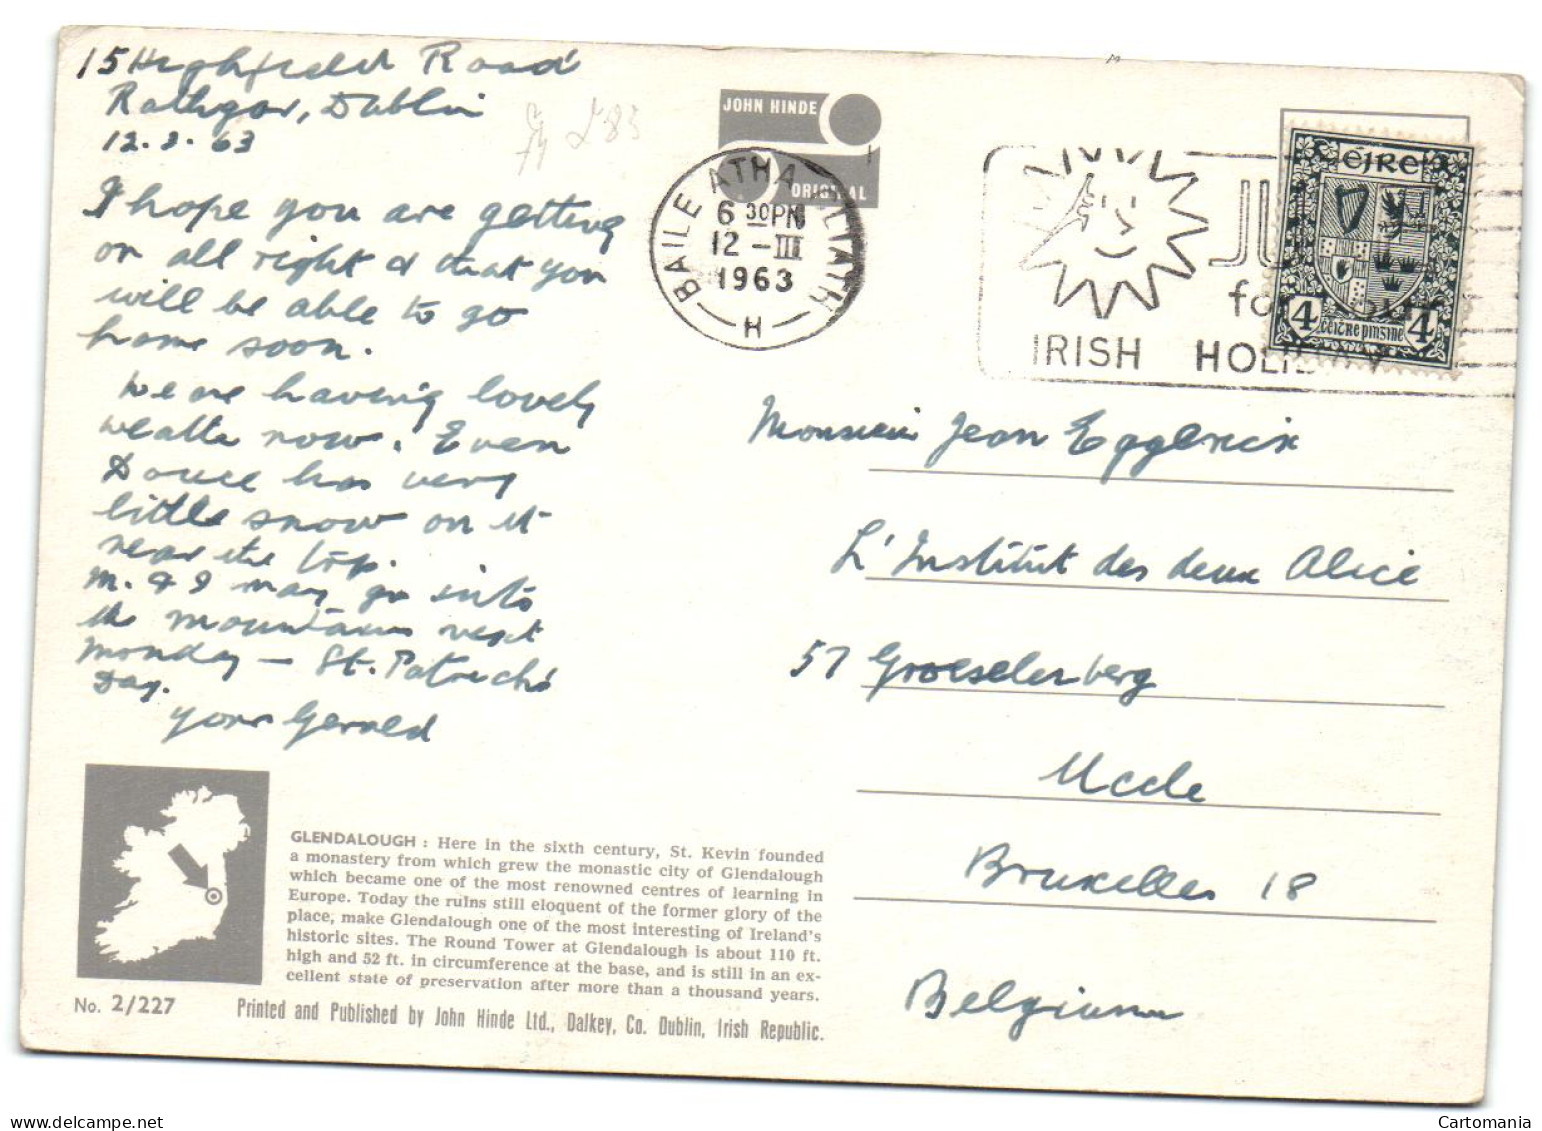 15 Highfield Road
Rathgar, Dublin
12.3.63
I hope you are getting
on all right & that you
will be able to go
home soon.
We are having lovely
weather now. Even
Douce has very
little snow on it
near the top.
M. & I may go into
the mountains next
Monday — St. Patrick's
Day.
Your Gerald
JOHN HINDE
ORIGINAL
BAILE ATHA CLIATH
6 30PM
12 - III
1963
H
JU
for
IRISH HOLIDAY
ÉIRE
4 4
Ceitre pinsine
Monsieur Jean Eggericx
L'Institut des deux Alice
57 Groeselenberg
Uccle
Bruxelles 18
Belgium
GLENDALOUGH : Here in the sixth century, St. Kevin founded
a monastery from which grew the monastic city of Glendalough
which became one of the most renowned centres of learning in
Europe. Today the ruins still eloquent of the former glory of the
place, make Glendalough one of the most interesting of Ireland's
historic sites. The Round Tower at Glendalough is about 110 ft.
high and 52 ft. in circumference at the base, and is still in an ex-
cellent state of preservation after more than a thousand years.
No. 2/227
Printed and Published by John Hinde Ltd., Dalkey, Co. Dublin, Irish Republic.
delcampe.net
Cartomania